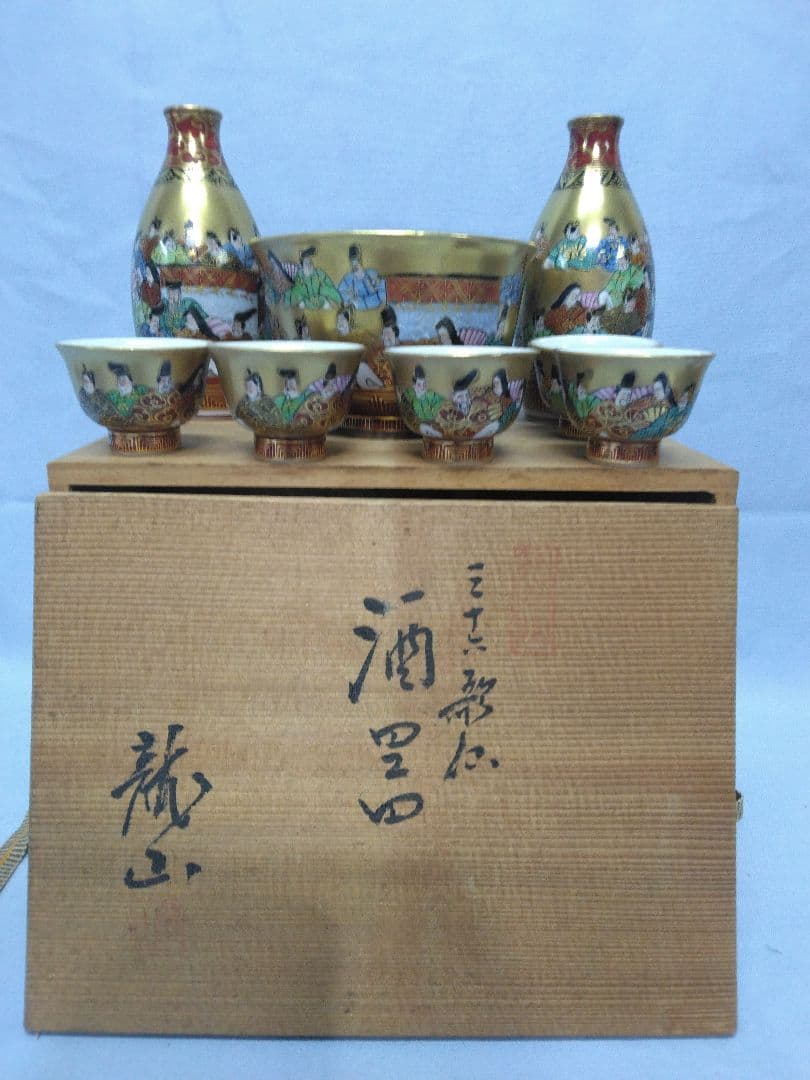 三十六歌仙
酒器
龍山